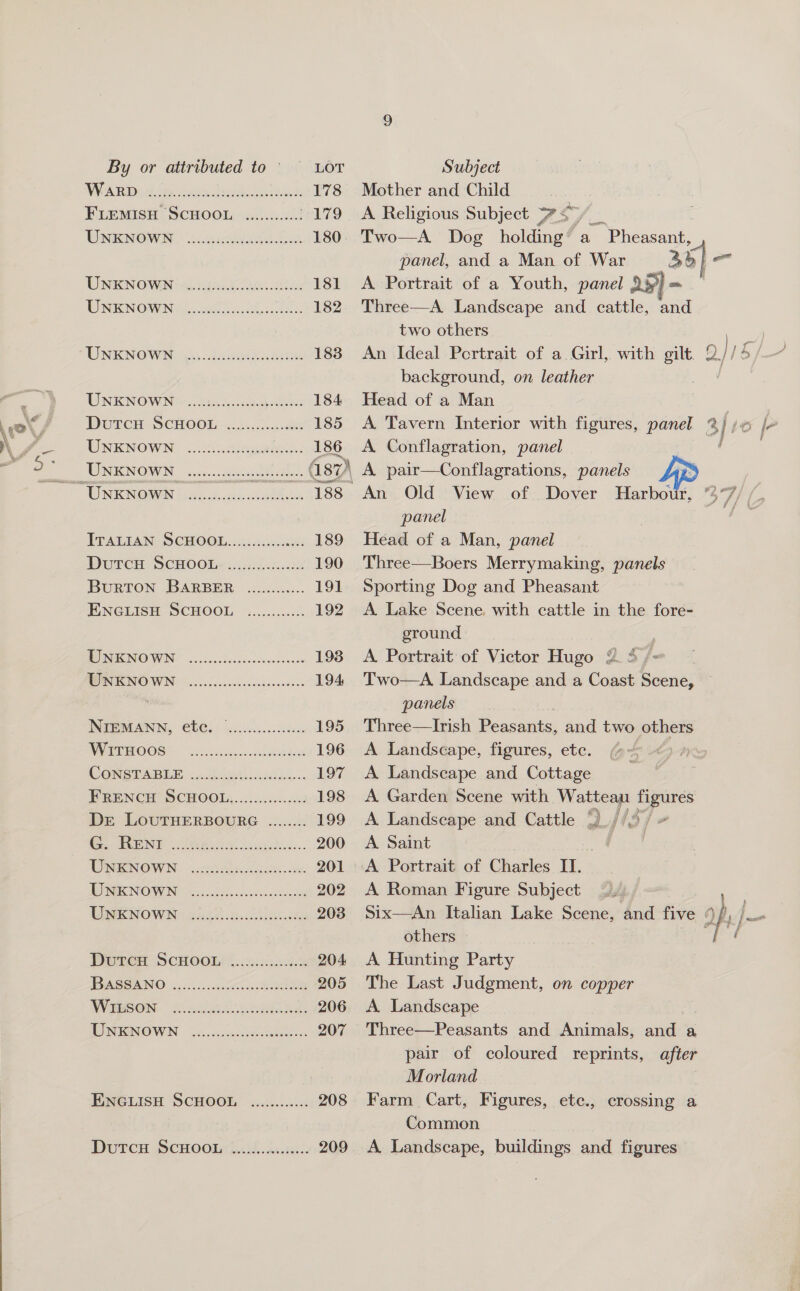 9
By or attributed to LOT Subject
WARD .................... 178 Mother and Child
FLEMISH SCHOOL ............ 179 A Religious Subject 75/
UNKNOWN .................... 180 Two—A Dog holding a Pheasant,
panel, and a Man of War 35/-
UNKNOWN .................... 181 A Portrait of a Youth, panel
UNKNOWN .................... 182 Three—A Landscape and cattle, and
two others
UNKNOWN .................... 183 An Ideal Portrait of a Girl, with gilt 2//5/-
background, on leather
UNKNOWN .................... 184 Head of a Man
DUTCH SCHOOL .............. 185 A Tavern Interior with figures, panel
UNKNOWN .................... 186 A Conflagration, panel
UNKNOWN .................... (187) A pair—Conflagrations, panels
UNKNOWN .................... 188 An Old View of Dover Harbour,
panel
ITALIAN SCHOOL.............. 189 Head of a Man, panel
DUTCH SCHOOL .............. 190 Three—Boers Merrymaking, panels
BURTON BARBER ............ 191 Sporting Dog and Pheasant
ENGLISH SCHOOL ............ 192 A Lake Scene, with cattle in the fore-
ground
UNKNOWN .................... 193 A Portrait of Victor Hugo
UNKNOWN .................... 194 Two—A Landscape and a Coast Scene,
panels
NIEMANN, etc. .............. 195 Three—Irish Peasants, and two others
WITHOOS .................... 196 A Landscape, figures, etc.
CONSTABLE .................. 197 A Landscape and Cottage
FRENCH SCHOOL.............. 198 A Garden Scene with Watteau figures
DE LOUTHERBOURG ........ 199 A Landscape and Cattle
G. RENI .................... 200 A Saint
UNKNOWN .................... 201 A Portrait of Charles II.
UNKNOWN .................... 202 A Roman Figure Subject
UNKNOWN .................... 203 Six—An Italian Lake Scene, and five
others
DUTCH SCHOOL .............. 204 A Hunting Party
BASSANO .................... 205 The Last Judgment, on copper
WILSON .................... 206 A Landscape
UNKNOWN .................... 207 Three—Peasants and Animals, and a
pair of coloured reprints, after
Morland
ENGLISH SCHOOL ............ 208 Farm Cart, Figures, etc., crossing a
Common
DUTCH SCHOOL .............. 209 A Landscape, buildings and figures